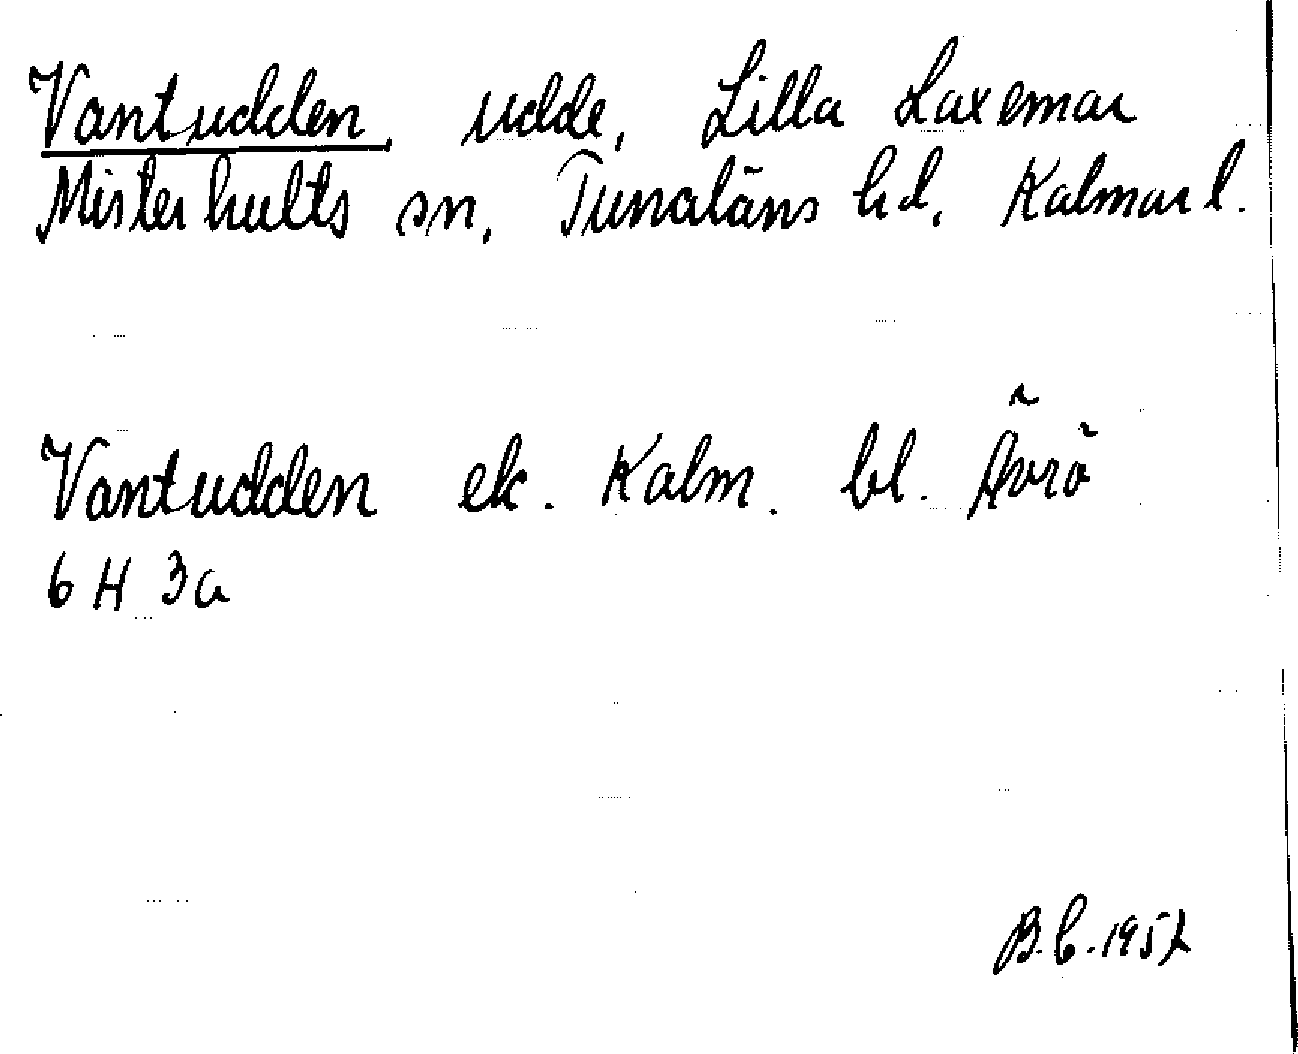 Vantudden, udde, Lilla Laxemar
Misterhults sn, Tunaläns hd, Kalmar l.
Vantudden ek. Kalm. bl. Ävrö
6 H 3a
B.C. 1952